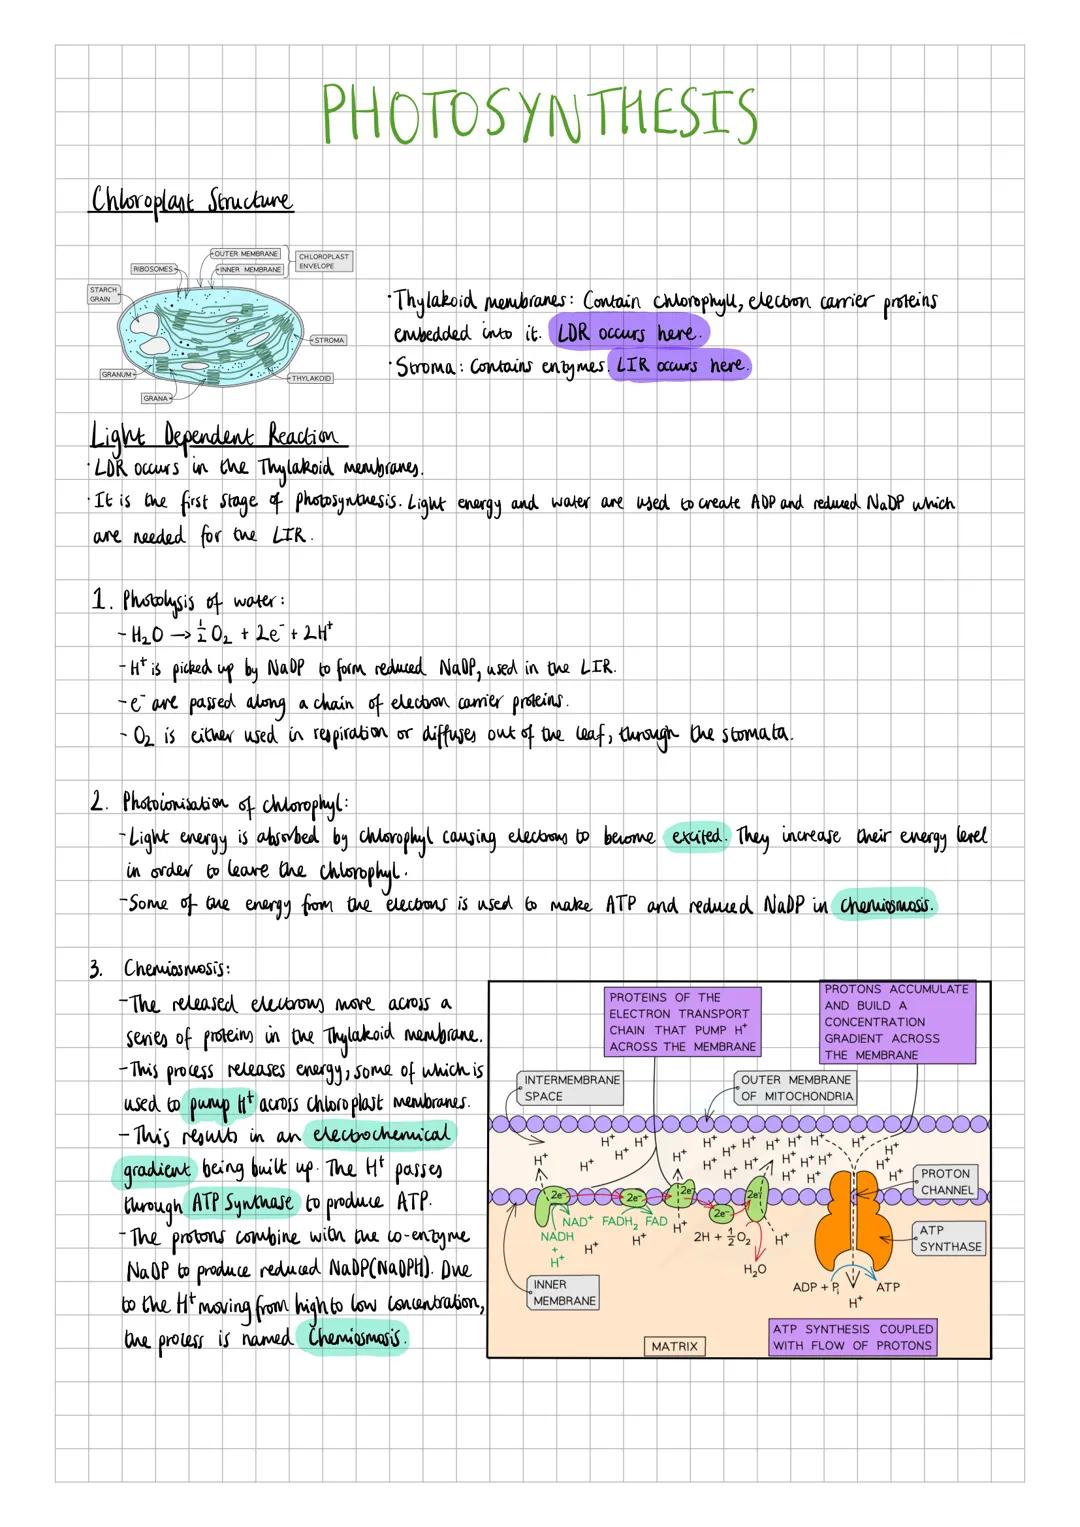 PHOTOSYNTHESIS
Chloroplast Structure
OUTER MEMBRANE
INNER MEMBRANE
CHLOROPLAST
ENVELOPE
RIBOSOMES
STARCH
GRAIN
STROMA
GRANUM
THYLAKOID
GRANA
· Thylakoid membranes: Contain chlorophyll, electron carrier proteins
embedded into it. LDR occurs here.
· Stroma: Contains enzymes. LIR occurs here.
Light Dependent Reaction
· LDR occurs in the Thylakoid membranes.
· It is the first stage of photosynthesis. Light energy and water are used to create ADP and reduced NaDP which
are needed for the LIR.
1. Photolysis of water:
- H₂O → ½ O₂ + 2e⁻ + 2H⁺
- H⁺ is picked up by NaDP to form reduced NaDP, used in the LIR.
- e⁻ are passed along a chain of electron carrier proteins.
- O₂ is either used in respiration or diffuses out of the leaf, through the stomata.
2. Photoionisation of chlorophyl:
- Light energy is absorbed by chlorophyl causing electrons to become excited. They increase their energy level
in order to leave the chlorophyl.
- Some of the energy from the electrons is used to make ATP and reduced NaDP in chemiosmosis.
3. Chemiosmosis:
- The released electrons move across a
series of proteins in the Thylakoid membrane.
- This process releases energy, some of which is
used to pump H⁺ across chloroplast membranes.
- This results in an electrochemical
gradient being built up. The H⁺ passes
through ATP Synthase to produce ATP.
- The protons combine with the co-enzyme
NaDP to produce reduced NaDP(NaDPH). Due
to the H⁺ moving from high to low concentration,
the process is named Chemiosmosis.
PROTEINS OF THE
ELECTRON TRANSPORT
CHAIN THAT PUMP H⁺
ACROSS THE MEMBRANE
PROTONS ACCUMULATE
AND BUILD A
CONCENTRATION
GRADIENT ACROSS
THE MEMBRANE
INTERMEMBRANE
SPACE
OUTER MEMBRANE
OF MITOCHONDRIA
H⁺ H⁺ H⁺ H⁺ H⁺ H⁺ H⁺ H⁺
H⁺ H⁺ H⁺ H⁺ H⁺ H⁺ H⁺ H⁺ H⁺
H⁺ H⁺ H⁺ H⁺ H⁺
PROTON
CHANNEL
2e⁻ 2e⁻ 2e⁻ 2e⁻ 2e⁻
NAD⁺ FADH₂ FAD
NADH
+
H⁺
H⁺ H⁺ H⁺
2H + ½O₂
H⁺
H₂O
ATP
SYNTHASE
INNER
MEMBRANE
ADP + Pᵢ
ATP
H⁺
ATP SYNTHESIS COUPLED
WITH FLOW OF PROTONS
MATRIX